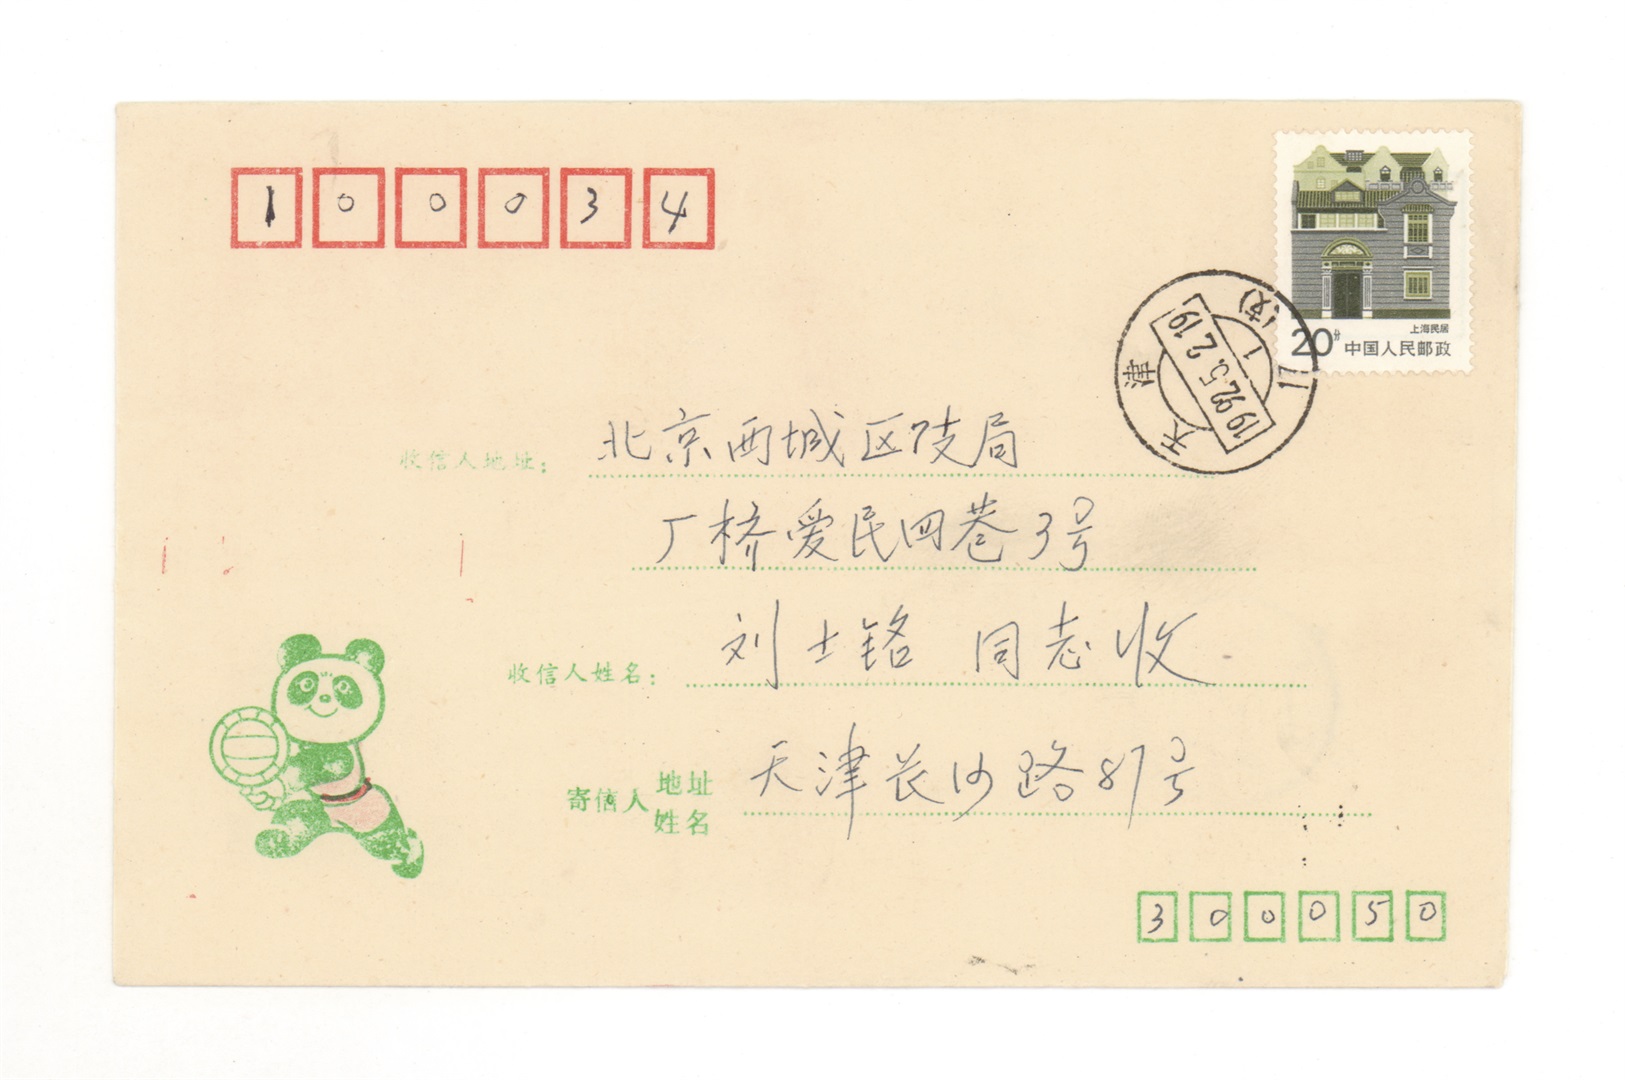 100034
20分 上海民居
中国人民邮政
天津
1992.5.2.19
17(支)
1
收信人地址：北京西城区支局
厂桥爱民四巷3号
收信人姓名：刘士铭 同志收
寄信人地址姓名 天津长沙路87号
300050